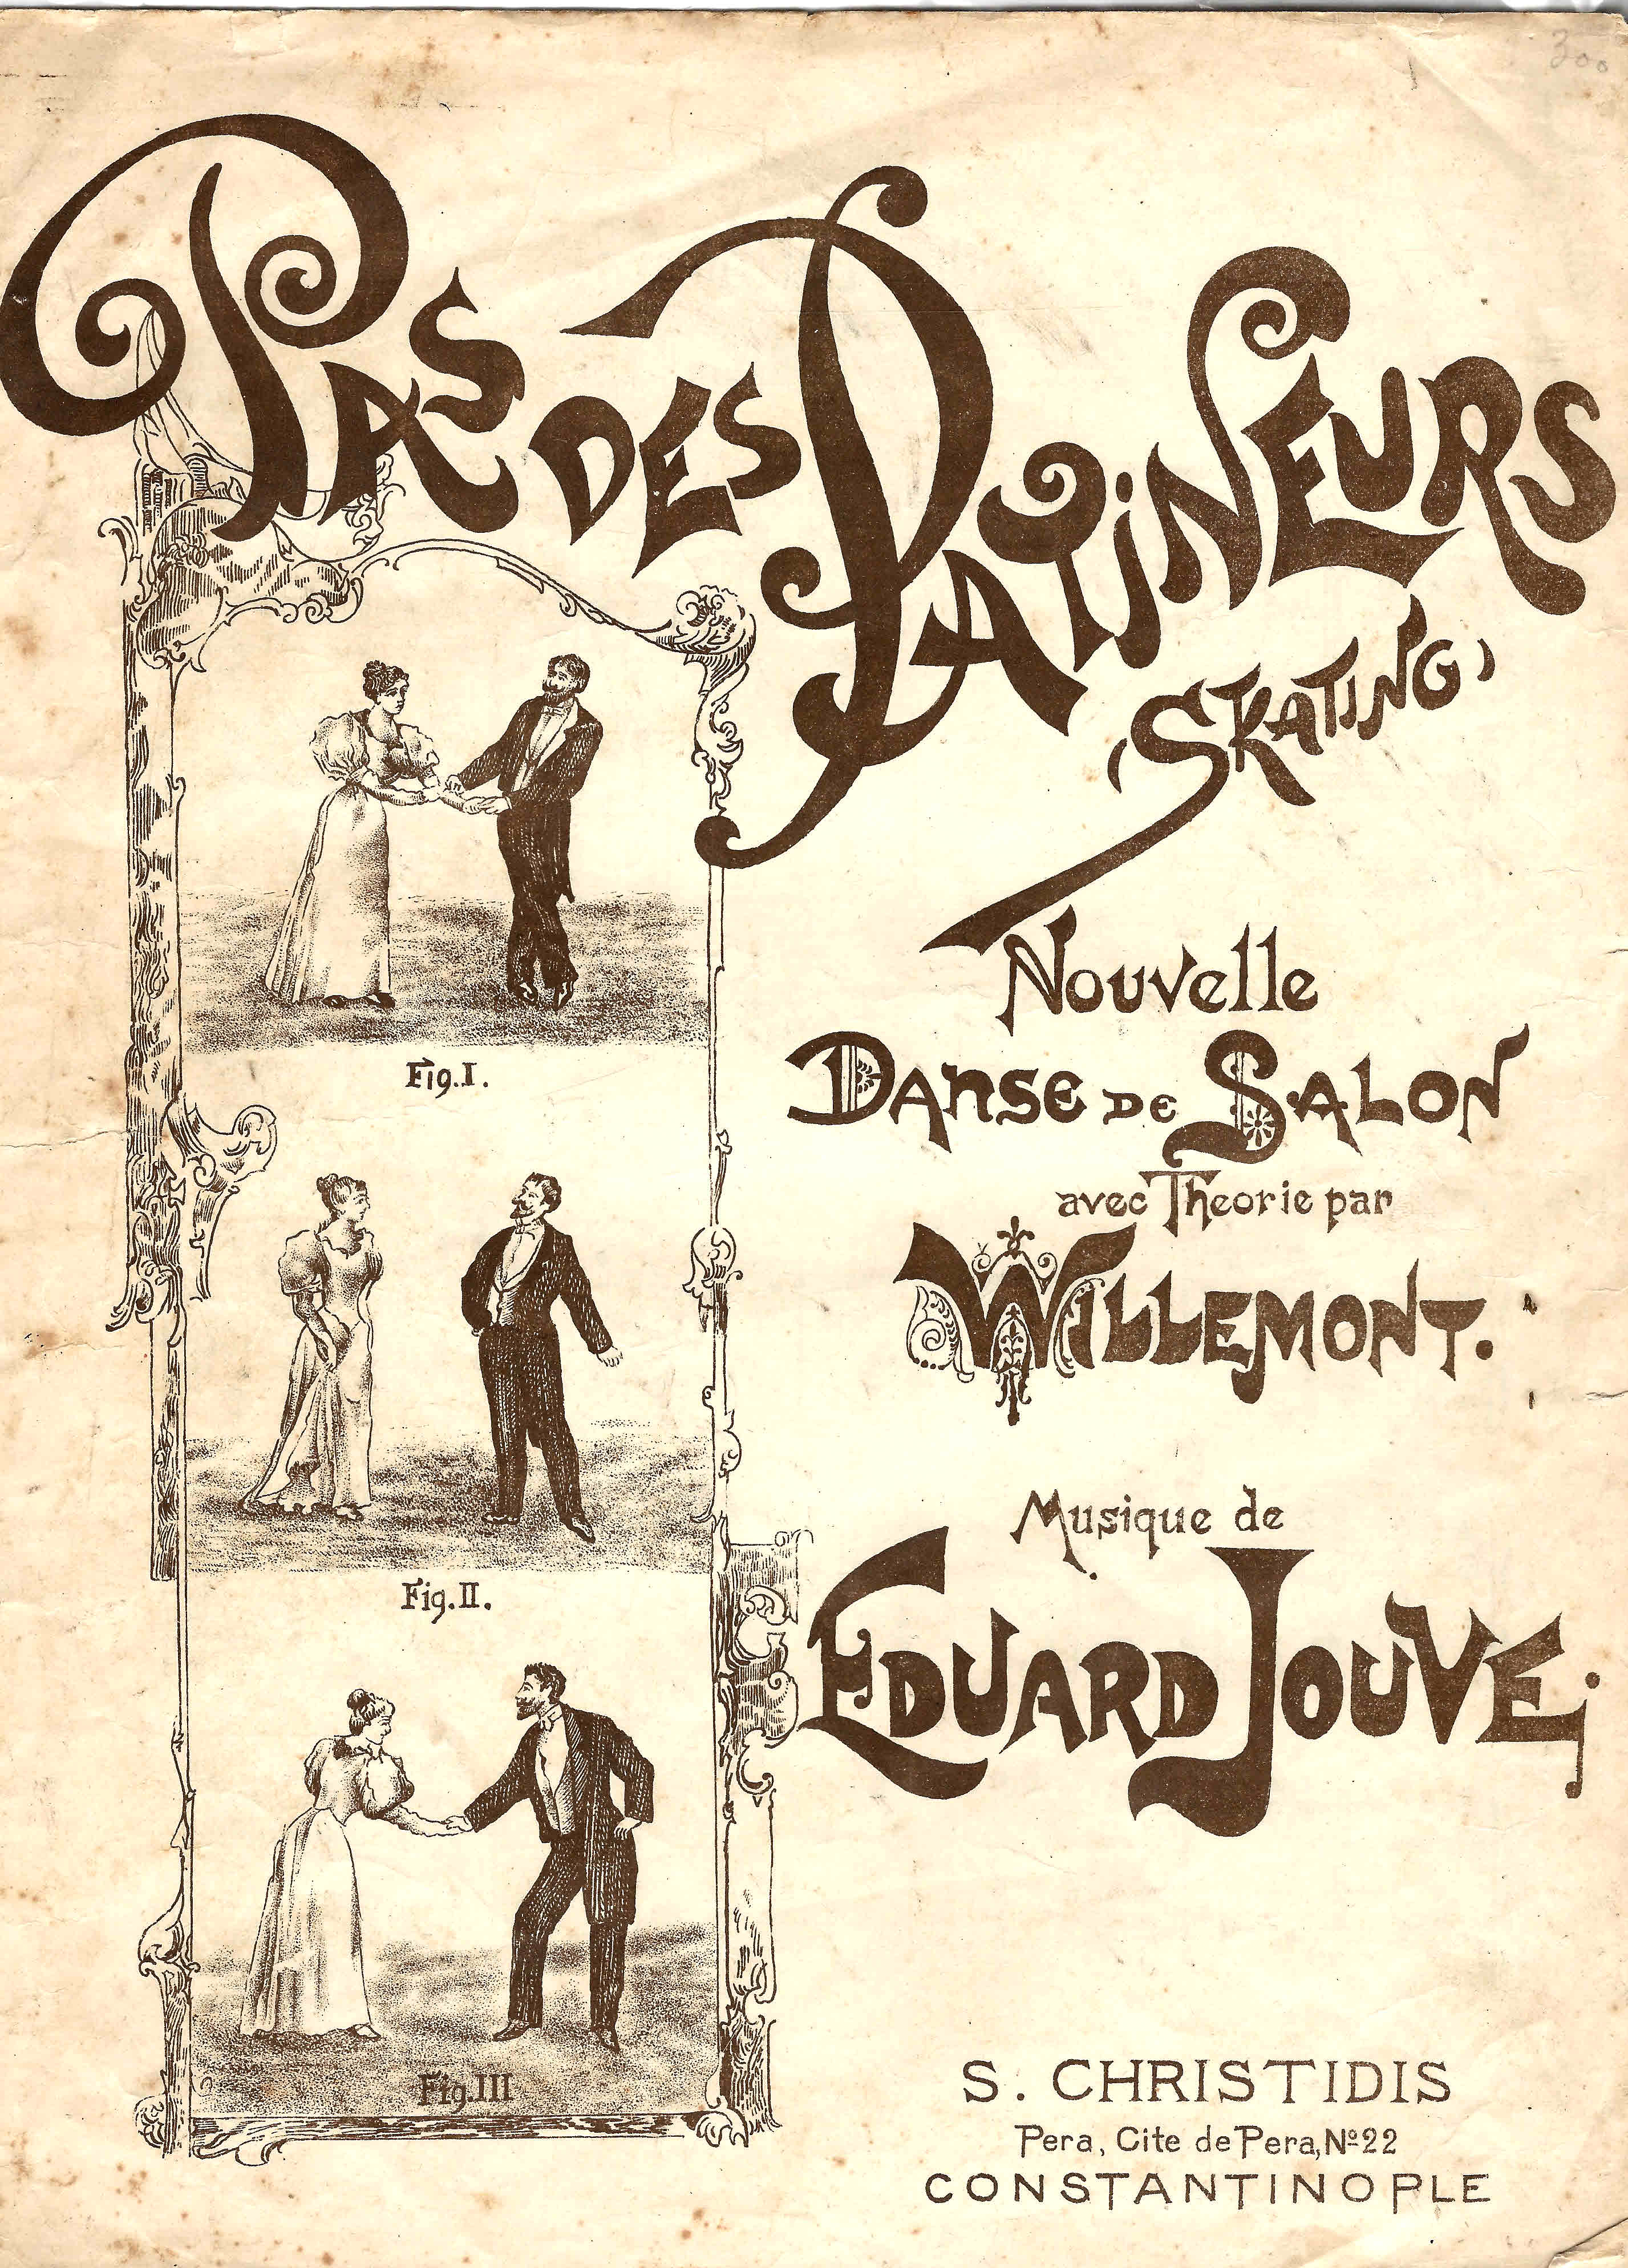 300
PAS DES PATINEURS
(SKATING)
Nouvelle
DANSE DE SALON
avec Theorie par
WILLEMONT.
Musique de
EDUARD JOUVE.
Fig. I.
Fig. II.
Fig. III
S. CHRISTIDIS
Pera, Cite de Pera, Nº 22
CONSTANTINOPLE